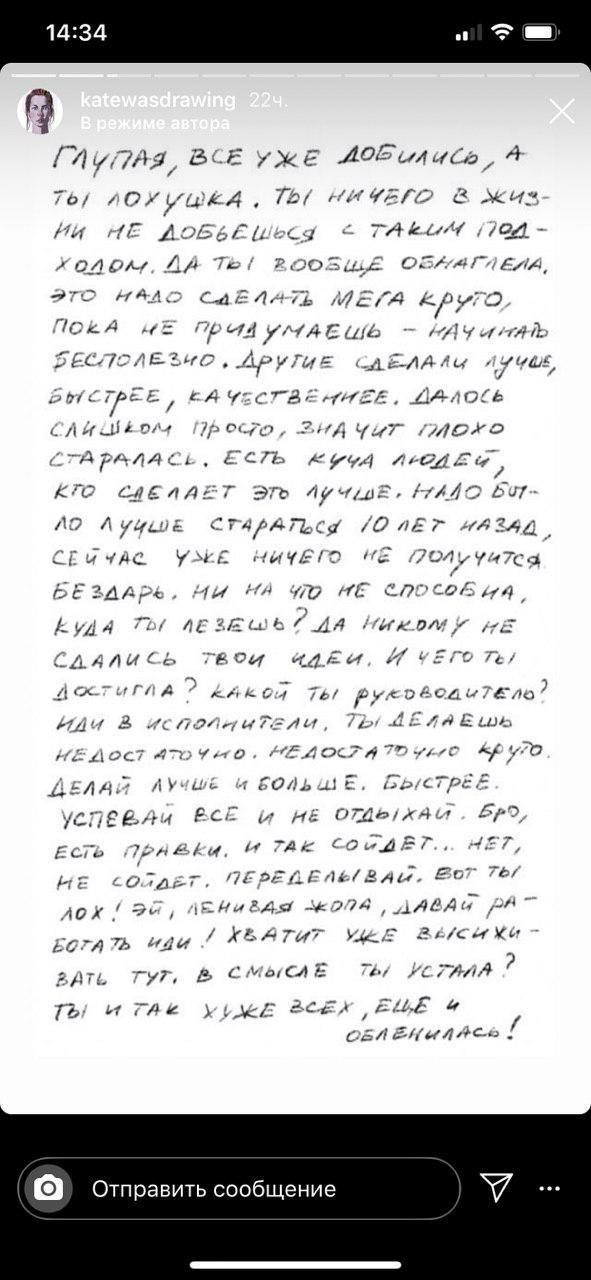 14:34
katewasdrawing 22ч.
В режиме автора
ГЛУПАЯ, ВСЕ УЖЕ ДОБИЛИСЬ, А
ТЫ ЛОХУШКА. ТЫ НИЧЕГО В ЖИЗ-
НИ НЕ ДОБЬЕШЬСЯ С ТАКИМ ПОД-
ХОДОМ. ДА ТЫ ВООБЩЕ ОБНАГЛЕЛА.
ЭТО НАДО СДЕЛАТЬ МЕГА КРУТО,
ПОКА НЕ ПРИДУМАЕШЬ - НАЧИНАТЬ
БЕСПОЛЕЗНО. ДРУГИЕ СДЕЛАЛИ ЛУЧШЕ,
БЫСТРЕЕ, КАЧЕСТВЕННЕЕ. ДАЛОСЬ
СЛИШКОМ ПРОСТО, ЗНАЧИТ ПЛОХО
СТАРАЛАСЬ. ЕСТЬ КУЧА ЛЮДЕЙ,
КТО СДЕЛАЕТ ЭТО ЛУЧШЕ. НАДО БЫ-
ЛО ЛУЧШЕ СТАРАТЬСЯ 10 ЛЕТ НАЗАД,
СЕЙЧАС УЖЕ НИЧЕГО НЕ ПОЛУЧИТСЯ.
БЕЗДАРЬ. НИ НА ЧТО НЕ СПОСОБНА,
КУДА ТЫ ЛЕЗЕШЬ? ДА НИКОМУ НЕ
СДАЛИСЬ ТВОИ ИДЕИ. И ЧЕГО ТЫ
ДОСТИГЛА? КАКОЙ ТЫ РУКОВОДИТЕЛЬ?
ИДИ В ИСПОЛНИТЕЛИ. ТЫ ДЕЛАЕШЬ
НЕДОСТАТОЧНО. НЕДОСТАТОЧНО КРУТО.
ДЕЛАЙ ЛУЧШЕ И БОЛЬШЕ. БЫСТРЕЕ.
УСПЕВАЙ ВСЕ И НЕ ОТДЫХАЙ. БРО,
ЕСТЬ ПРАВКИ. И ТАК СОЙДЕТ... НЕТ,
НЕ СОЙДЕТ. ПЕРЕДЕЛЫВАЙ. ВОТ ТЫ
ЛОХ! ЭЙ, ЛЕНИВАЯ ЖОПА, ДАВАЙ РА-
БОТАТЬ ИДИ! ХВАТИТ УЖЕ ВЫСИЖИ-
ВАТЬ ТУТ. В СМЫСЛЕ ТЫ УСТАЛА?
ТЫ И ТАК ХУЖЕ ВСЕХ, ЕЩЕ И
ОБЛЕНИЛАСЬ!
Отправить сообщение